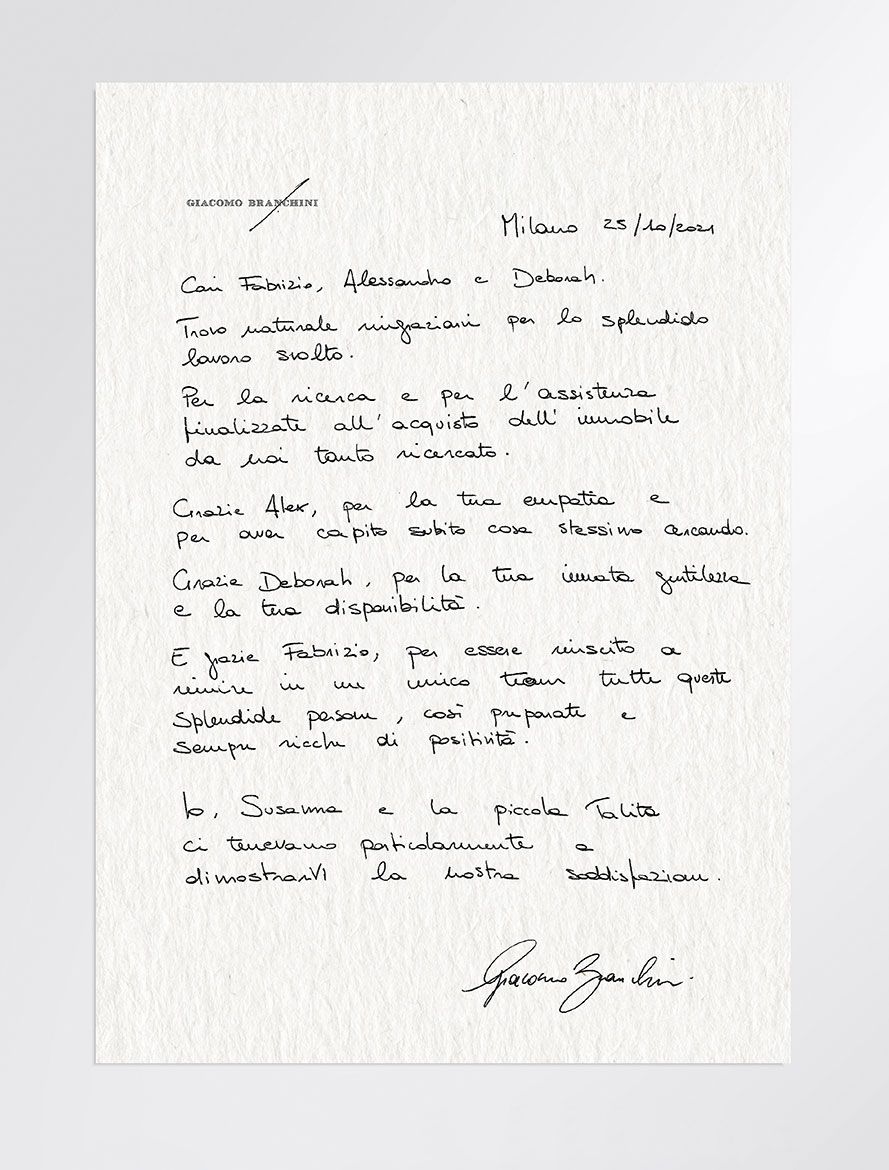 GIACOMO BRANCHINI
Milano 25/10/2021
Cari Fabrizio, Alessandro e Deborah.
Trovo naturale ringraziarvi per lo splendido
lavoro svolto.
Per la ricerca e per l'assistenza
finalizzate all'acquisto dell'immobile
da noi tanto ricercato.
Grazie Alex, per la tua empatia e
per aver capito subito cosa stessimo cercando.
Grazie Deborah, per la tua innata gentilezza
e la tua disponibilità.
E grazie Fabrizio, per essere riuscito a
riunire in un unico team tutte queste
splendide persone, così preparate e
sempre ricche di positività.
Io, Susanna e la piccola Talita
ci tenevamo particolarmente a
dimostrarVi la nostra soddisfazione.
Giacomo Branchini